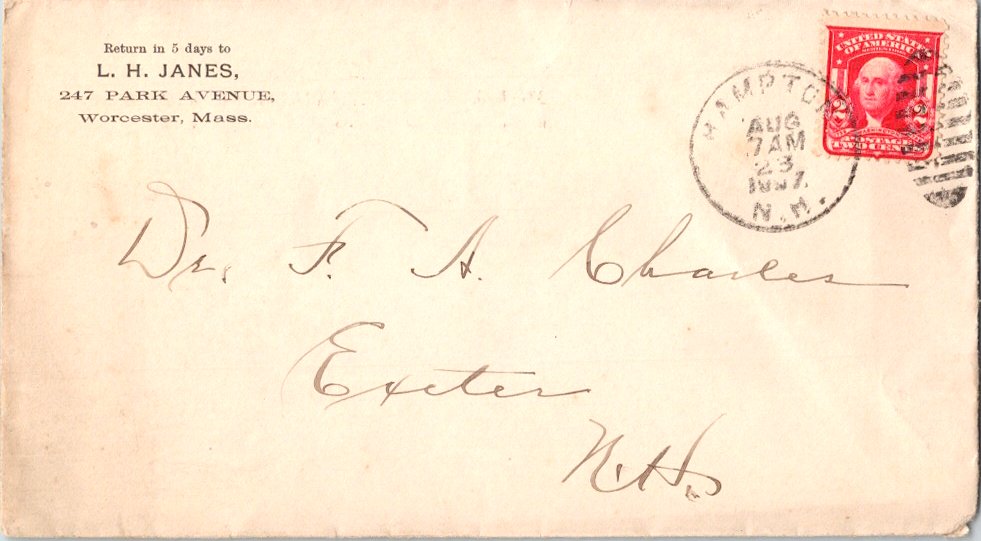 Return in 5 days to
L. H. JANES,
247 PARK AVENUE,
Worcester, Mass.
UNITED STATES
OF AMERICA
2 2
POSTAGE
TWO CENTS
HAMPTON
AUG
7 AM
23
N.H.
Dr. F. A. Charles
Exeter
N.H.